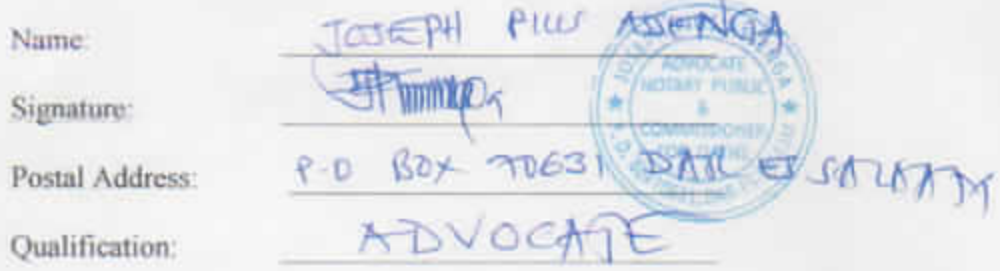 Name: JOSEPH PIUS ASENGA
Signature:
Postal Address: P.O BOX 70631 DAR ES SALAAM
Qualification: ADVOCATE
ADVOCATE
NOTARY PUBLIC
&
COMMISSIONER
FOR OATHS